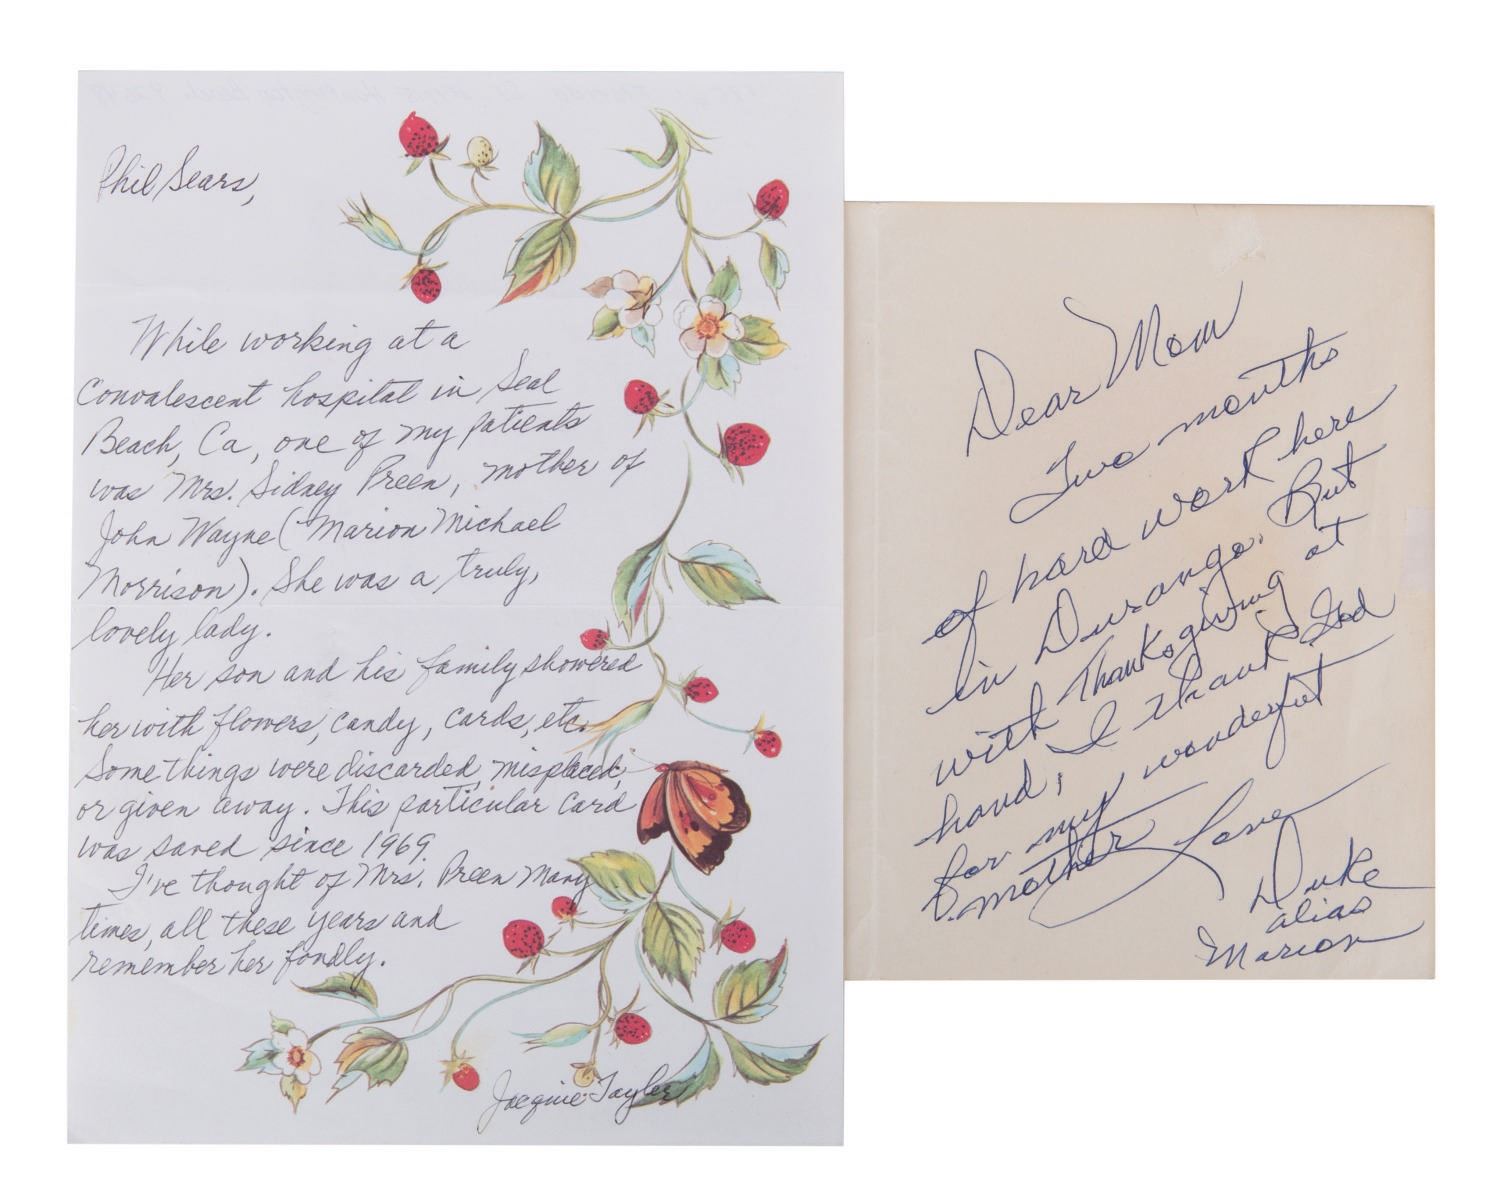 Phil Sears,
While working at a
Convalescent hospital in Seal
Beach, Ca, one of my patients
was Mrs. Sidney Preen, mother of
John Wayne (Marion Michael
Morrison). She was a truly,
lovely lady.
Her son and his family showered
her with flowers, candy, cards, etc.
Some things were discarded, misplaced,
or given away. This particular card
was saved since 1969.
I've thought of Mrs. Preen many
times, all these years and
remember her fondly.
Jacquie Tayler
Dear Mom
Two months
of hard work here
in Durango. But
with Thanksgiving at
hand, I thank God
for my wonderful
mother
Love
Duke
alias
Marion